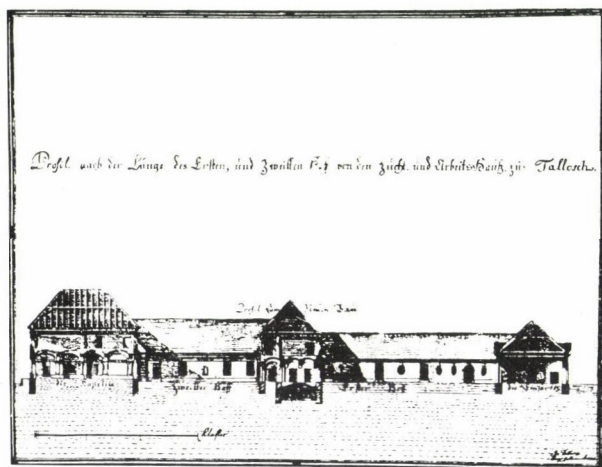 Profil nach der Länge des Ersten, und Zweitten Hof von den Zucht und Arbeits-Hauß zu Tallosch.
Profil Neuen Bau
die Capelln Zweitter Hoff Erster Hof die Einfarth
Klafter